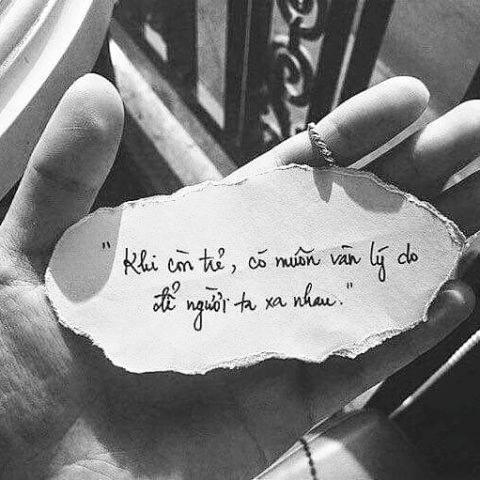 "Khi còn trẻ, có muôn vàn lý do
để người ta xa nhau."